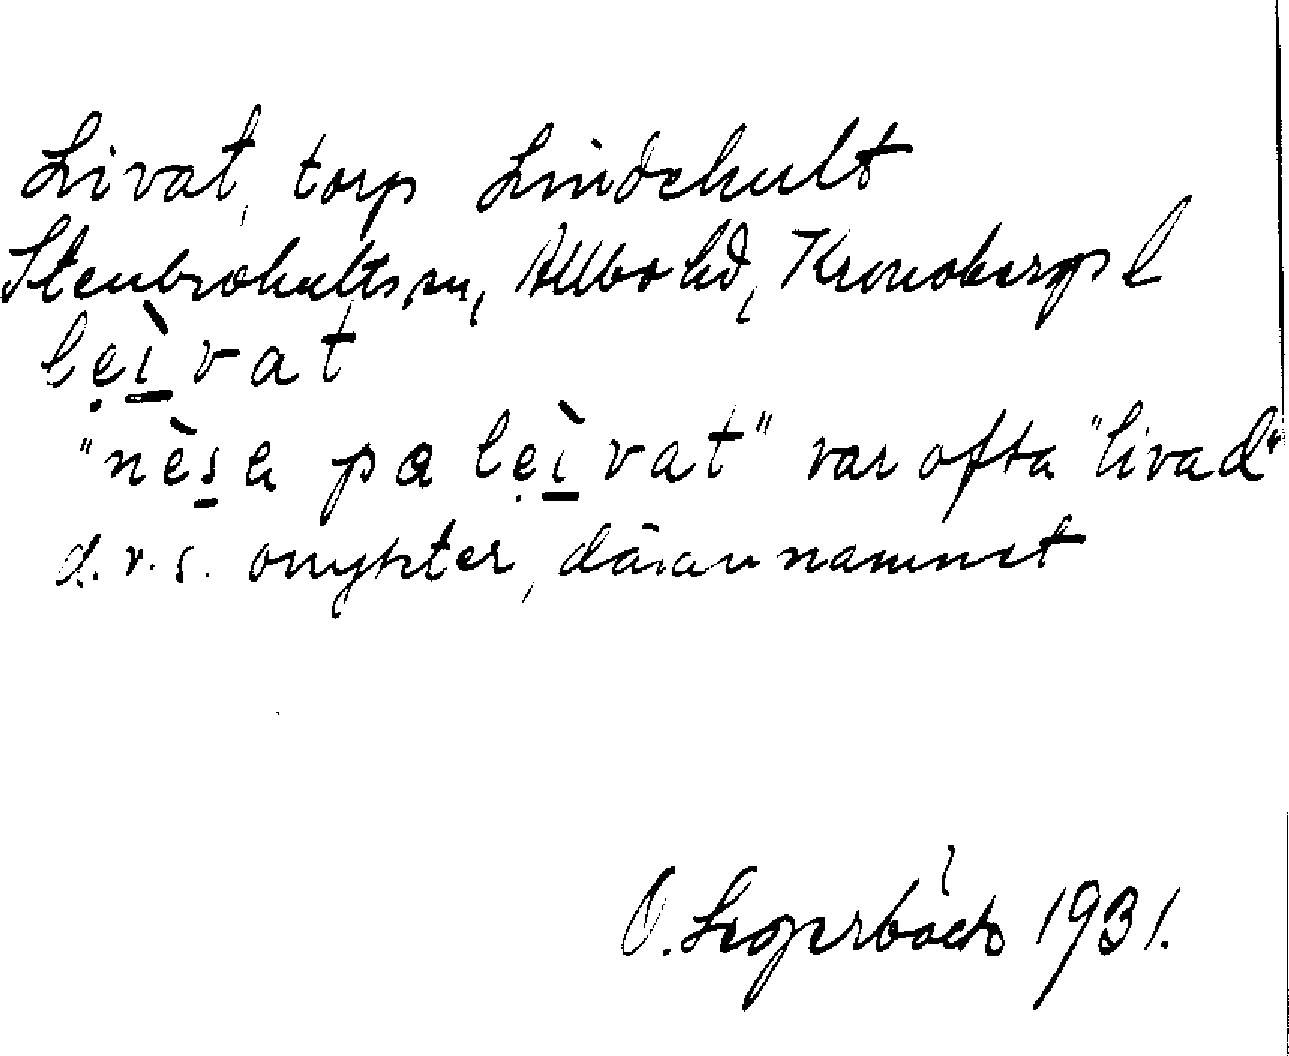 Livat, torp Lindehult
Stenbrohults sn, Allbo hd, Kronobergs l
lẹì̠vat
"nès̠a pa lẹì̠vat" var ofta "livad"
d.v.s. onykter, därav namnet
O. 1931.